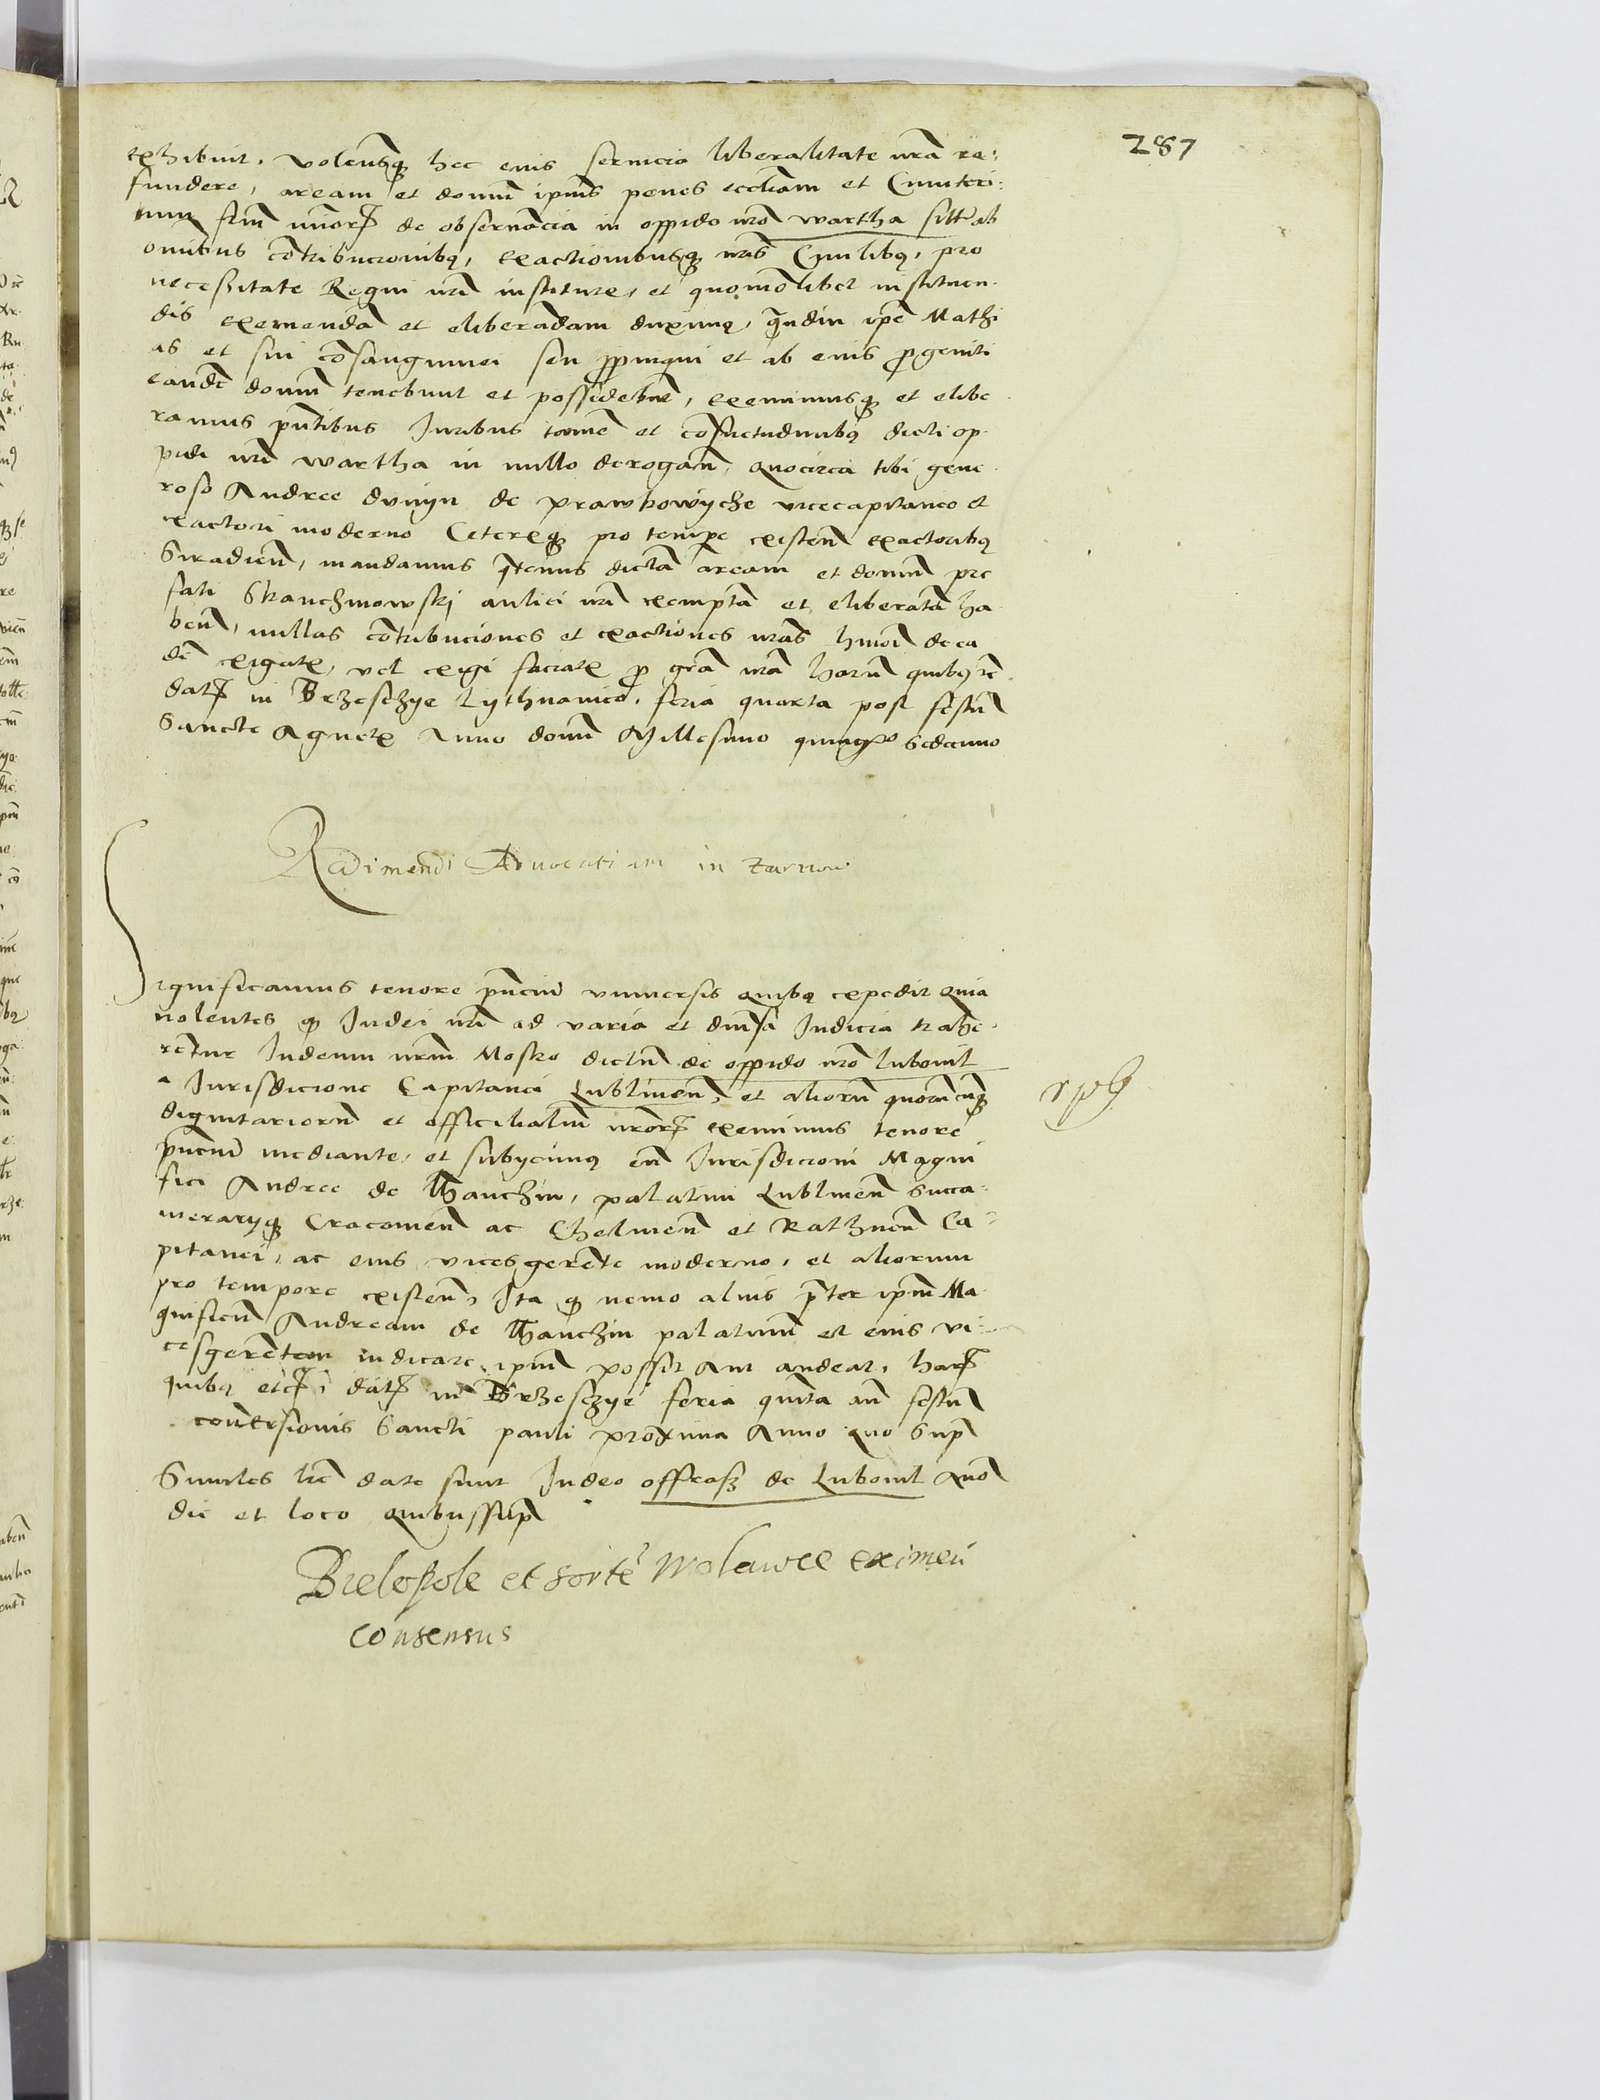 287
exhibuit. volensq hec eius servicia liberalitate nra re-
fundere, aream et domu ipius penes eccliam et Cimiteri-
um frum minor de observacia in oppido nro wartha sitt ab
omibus cotribucionibq, exactionibusq nris Civilibq, pro
necessitate Regni nri institute, et quomolibet instituen-
dis exemenda et eliberadam duximq, qmdiu ipe Mathi
as et sui cosanguinei seu propinqui et ab eius progeniti
eande domu tenebunt et possidebut, eximimusq et elibe
ramus pntibus Iuribus tamen et cosuetudinibq dicti op-
pidi nri wartha in nullo derogan, quocirca tibi gene-
roso Andree dunyn de prawkowycze vicecapitaneo et
exactori moderno Ceterisq pro tempe existen exactoribq
Siradien, mandamus qtenus dicta aream et domum pre
fati Skanczmowskj aulici nri exempta et eliberata ha
ben, nullas cotribuciones et exactiones nras hmoi de ea
de exigate, vel exigi faciate p gra nra haru quibq rc
dat in Brzesczye Lythuanico, feria quarta post festu
Sancte Agnete Anno domi Millesimo quingmo sedecimo
Redimendi Advocatiam in Zarnow
Significamus tenore pncium universis quibq expedit quia
nolentes q Iudei nri ad varia et diversa Iudicia trahe-
rentur Iudeum nrm Mosko dictu de oppido nro luboml
a Iurisdicione Capitanei Lublinen, et alioru quorucuq
dignitarioru et officialiu nror eximimus tenore
pncium mediante, et subycimq eu Iurisdicioni Magni
fici Andree de Thanczin, palatini Lublinen Succa-
meraryq Cracovien ac Chelmen et Rathnen Ca-
pitanei, ac eius vicesgerente moderno, et aliorum
pro tempore existen, Ita q nemo alius pter ipm Ma
gnificu Andream de Thanczin palatinu et eius vi-
cesgerentem iudicare ipm possit aut audeat, har
quibq etc, dat in Brzesczye feria quinta an festu
conversionis Sancti pauli proxima Anno quo supra
Similes lre date sunt Iudeo de Luboml
die et loco quibussupra
Bielopole et sorte eximen
consensus